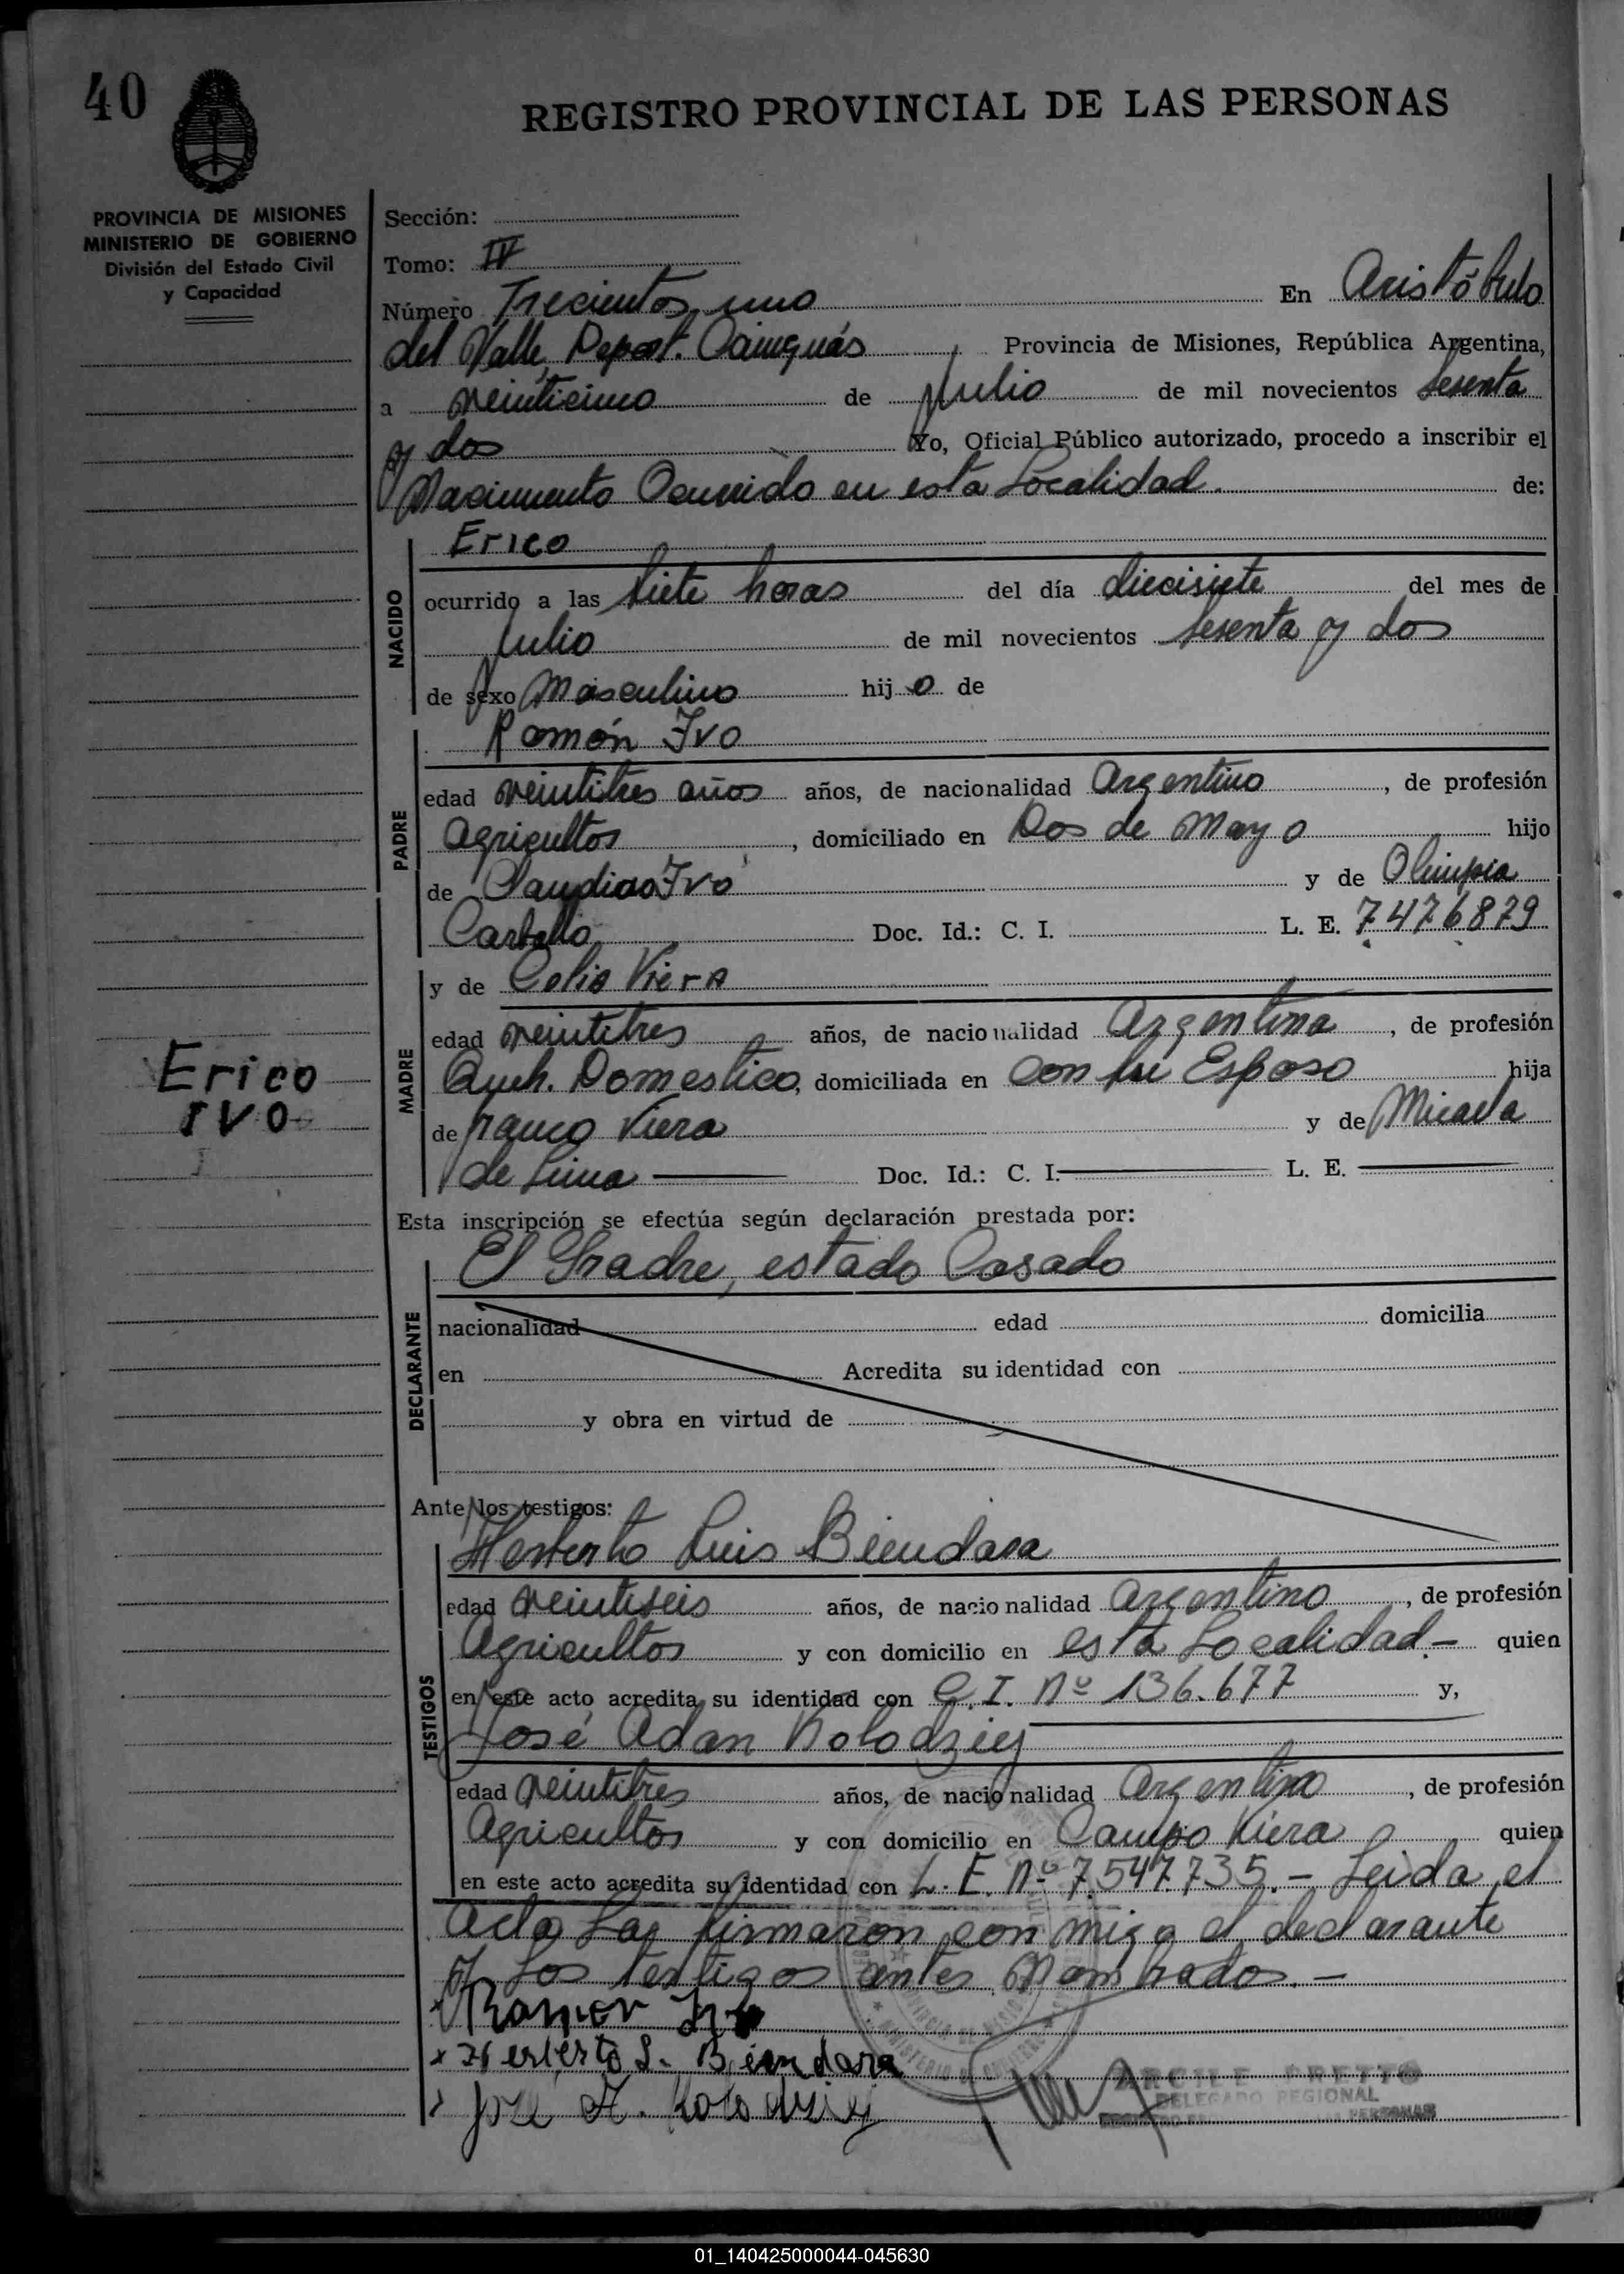 40
REGISTRO PROVINCIAL DE LAS PERSONAS
PROVINCIA DE MISIONES
MINISTERIO DE GOBIERNO
División del Estado Civil
y Capacidad
Sección:
Tomo: IV
Número Trecientos uno En Aristóbulo
del Valle, Depart. Cainguás Provincia de Misiones, República Argentina,
a veinticinco de Julio de mil novecientos sesenta
y dos Yo, Oficial Público autorizado, procedo a inscribir el
Nacimiento Ocurrido en esta Localidad. de:
NACIDO
Erico
ocurrido a las siete horas del día diecisiete del mes de
Julio de mil novecientos sesenta y dos
de sexo Masculino hij o de
PADRE
Ramón Ivo
edad veintitres años años, de nacionalidad Argentino, de profesión
Agricultor, domiciliado en Dos de Mayo hijo
de Claudiao Ivo y de Olimpia
Doc. Id.: C. I. L. E. 7476879
MADRE
y de Celia Viera
edad veintitres años, de nacionalidad Argentina, de profesión
Queh. Domestico, domiciliada en con su Esposo hija
de franco Viera y de
de Lima Doc. Id.: C. I. L. E.
Erico
IVO
Esta inscripción se efectúa según declaración prestada por:
DECLARANTE
El Padre, estado Casado
nacionalidad edad domicilia
en Acredita su identidad con
y obra en virtud de
Ante los testigos:
TESTIGOS
Herberto Luis Biendara
edad veintiseis años, de nacionalidad Argentino, de profesión
Agricultor y con domicilio en esta Localidad.- quien
en este acto acredita su identidad con C. I. Nº 136.677 y,
José Adan Kolodziej
edad veintitres años, de nacionalidad Argentino, de profesión
Agricultor y con domicilio en Campo Viera quien
en este acto acredita su identidad con L. E. Nº 7.547.735.- Leida el
Acta Las firmaron con migo el declarante
y Los testigos antes Nombrados.-
x Ramon Ivo
x Herberto L. Biendara
x José A. Kolodziej
DELEGADO REGIONAL
01_140425000044-045630